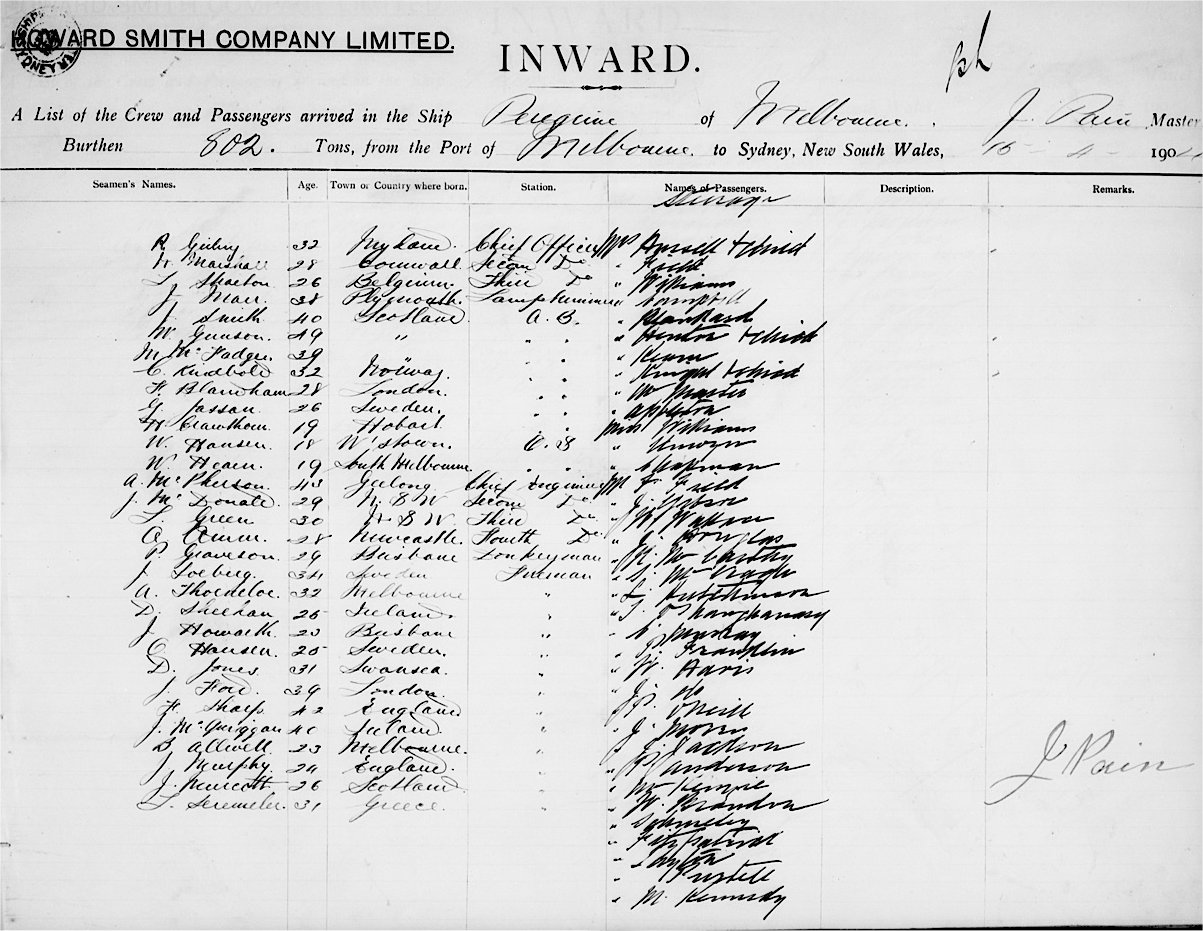 HOWARD SMITH COMPANY LIMITED.
INWARD.
A List of the Crew and Passengers arrived in the Ship Peregrine of Melbourne. J. Pain Master
Burthen 802. Tons, from the Port of Melbourne. to Sydney, New South Wales, 4 190
Seamen's Names. Age. Town or Country where born. Station. Names of Passengers. Description. Remarks.
Steerage
R 32 Chief Officer Mrs Russell & child
Marshall 28 Cornwall. Secon Do " Field
26 Belgium. Third Do " Williams
J. Marr. 38 Plymouth. Lamp trimmer " Campbell
J. Smith 40 Scotland A. B. " Blankard
W. Gunson. 49 " " " " & child
M. McFadger 39 " " "
C. Kindbold 32 Norway. " " " Knight & child
F. Blancham 28 London. " "
G. Jassan. 26 Sweden. " " " Appleton
Crawthorn 19 Hobart " " Miss Williams
W. Hansen. 18 W'stown. O. S " Unwyn
W. Hearn. 19 South Melbourne " " " Chapman
A. McPherson. 43 Geelong. Chief Engineer Mr F. Field
J. McDonald. 29 N. S W. Secon Do
Green 30 N S W. Third Do "
28 Newcastle. Fourth Do " Douglas
P. Graveson. 29 Brisbane Donkeyman " McCarthy
J. Soeberg. 34 Sweden Fireman "
A. 32 Melbourne " " Hutchinson
D. Sheehan 25 Ireland. " " J. O'Shanghanasy
J. Howarth. 23 Brisbane " " Murray
C. Hansen. 25 Sweden. " " Franklin
D. Jones. 31 Swansea. " " W. Davis
J. Ford. 39 London. " " J. do
F. Sharp. 42 England " " O'Neill
J. McGuiggan 40 Ireland " " J. Morris
B. Allwell 23 Melbourne. " " Jackson
J. Murphy. 24 England. " " Anderson
J. 26 Scotland " " McKenzie
31 Greece. " " W. Brandon
"
" Fitzpatrick
" Taylor
"
" M. Kennedy
J Pain